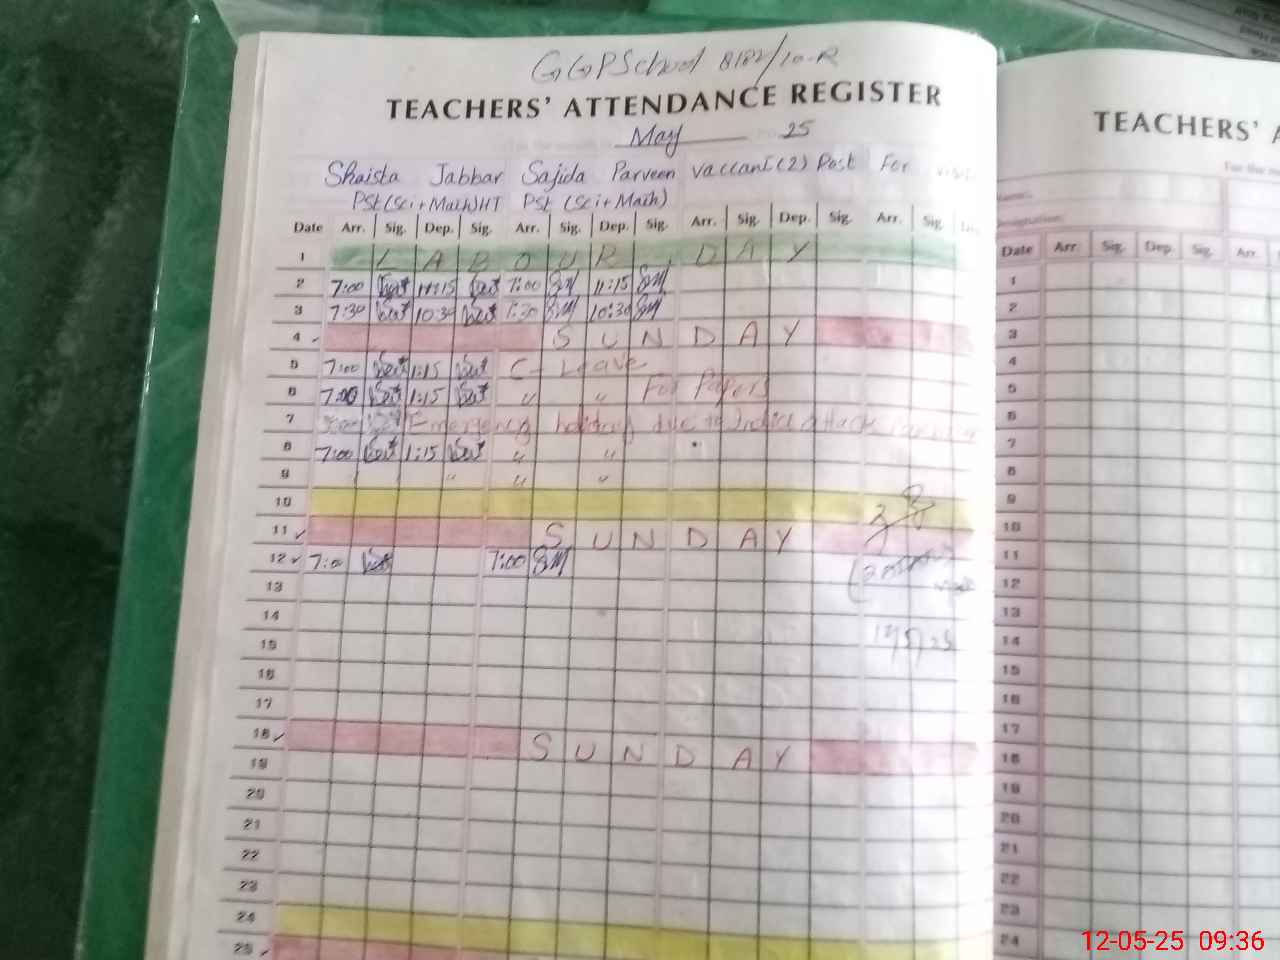 GGPSchool 8182/10-R
TEACHERS' ATTENDANCE REGISTER
May 25
Shaista Jabbar Sajida Parveen vaccant(2) Post For
PSt(Sci+Math)HT PSt (Sci+Math)
Date Arr. Sig. Dep. Sig. Arr. Sig. Dep. Sig. Arr. Sig. Dep. Sig. Arr. Sig.
1 LABOUR DAY
2 7:00 11:15 7:00 SM 11:15 SM
3 7:30 10:30 7:30 SM 10:30 SM
4 SUNDAY
5 7:00 1:15 C-Leave
6 7:00 1:15 " " For Papers
7 Emergency holiday due to India attack
8 7:00 1:15 " "
9 " " "
10
11 SUNDAY
12 7:0 7:00 SM
13
14
15
16
17
18 SUNDAY
19
20
21
22
23
24
25
TEACHERS'
Date Arr. Sig. Dep. Sig. Arr.
1
2
3
4
5
6
7
8
9
10
11
12
13
14
15
16
17
18
19
20
21
22
23
24
12-05-25 09:36